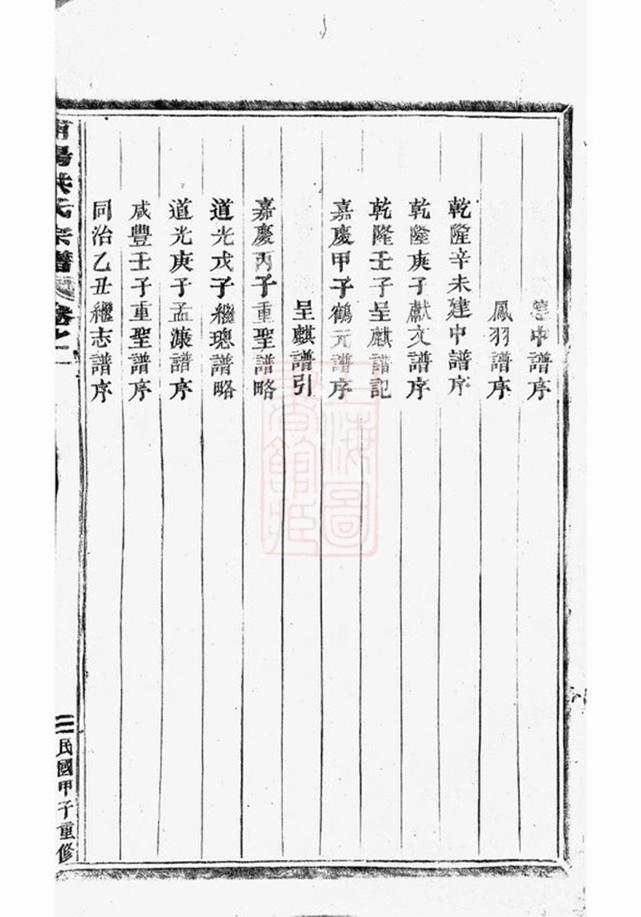 中譜序
鳳羽譜序
乾隆辛未建中譜序
乾隆庚子獻文譜序
乾隆壬子呈麒譜記
嘉慶甲子鶴元譜序
呈麒譜引
嘉慶丙子重聖譜略
道光戊子繼璁譜略
道光庚子孟濂譜序
咸豐壬子重聖譜序
同治乙丑繼志譜序
南陽洪氏宗譜 卷之一
三 民國甲子重修
上海圖書館藏